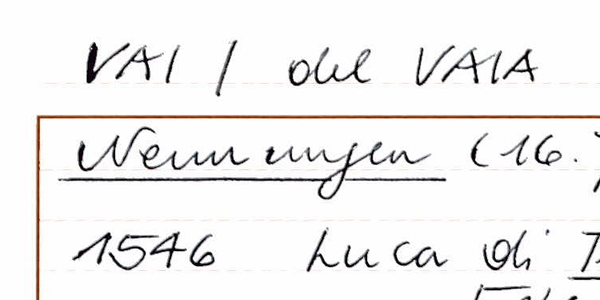 VAI / del VAIA
Nennungen (16.
1546 Luca di